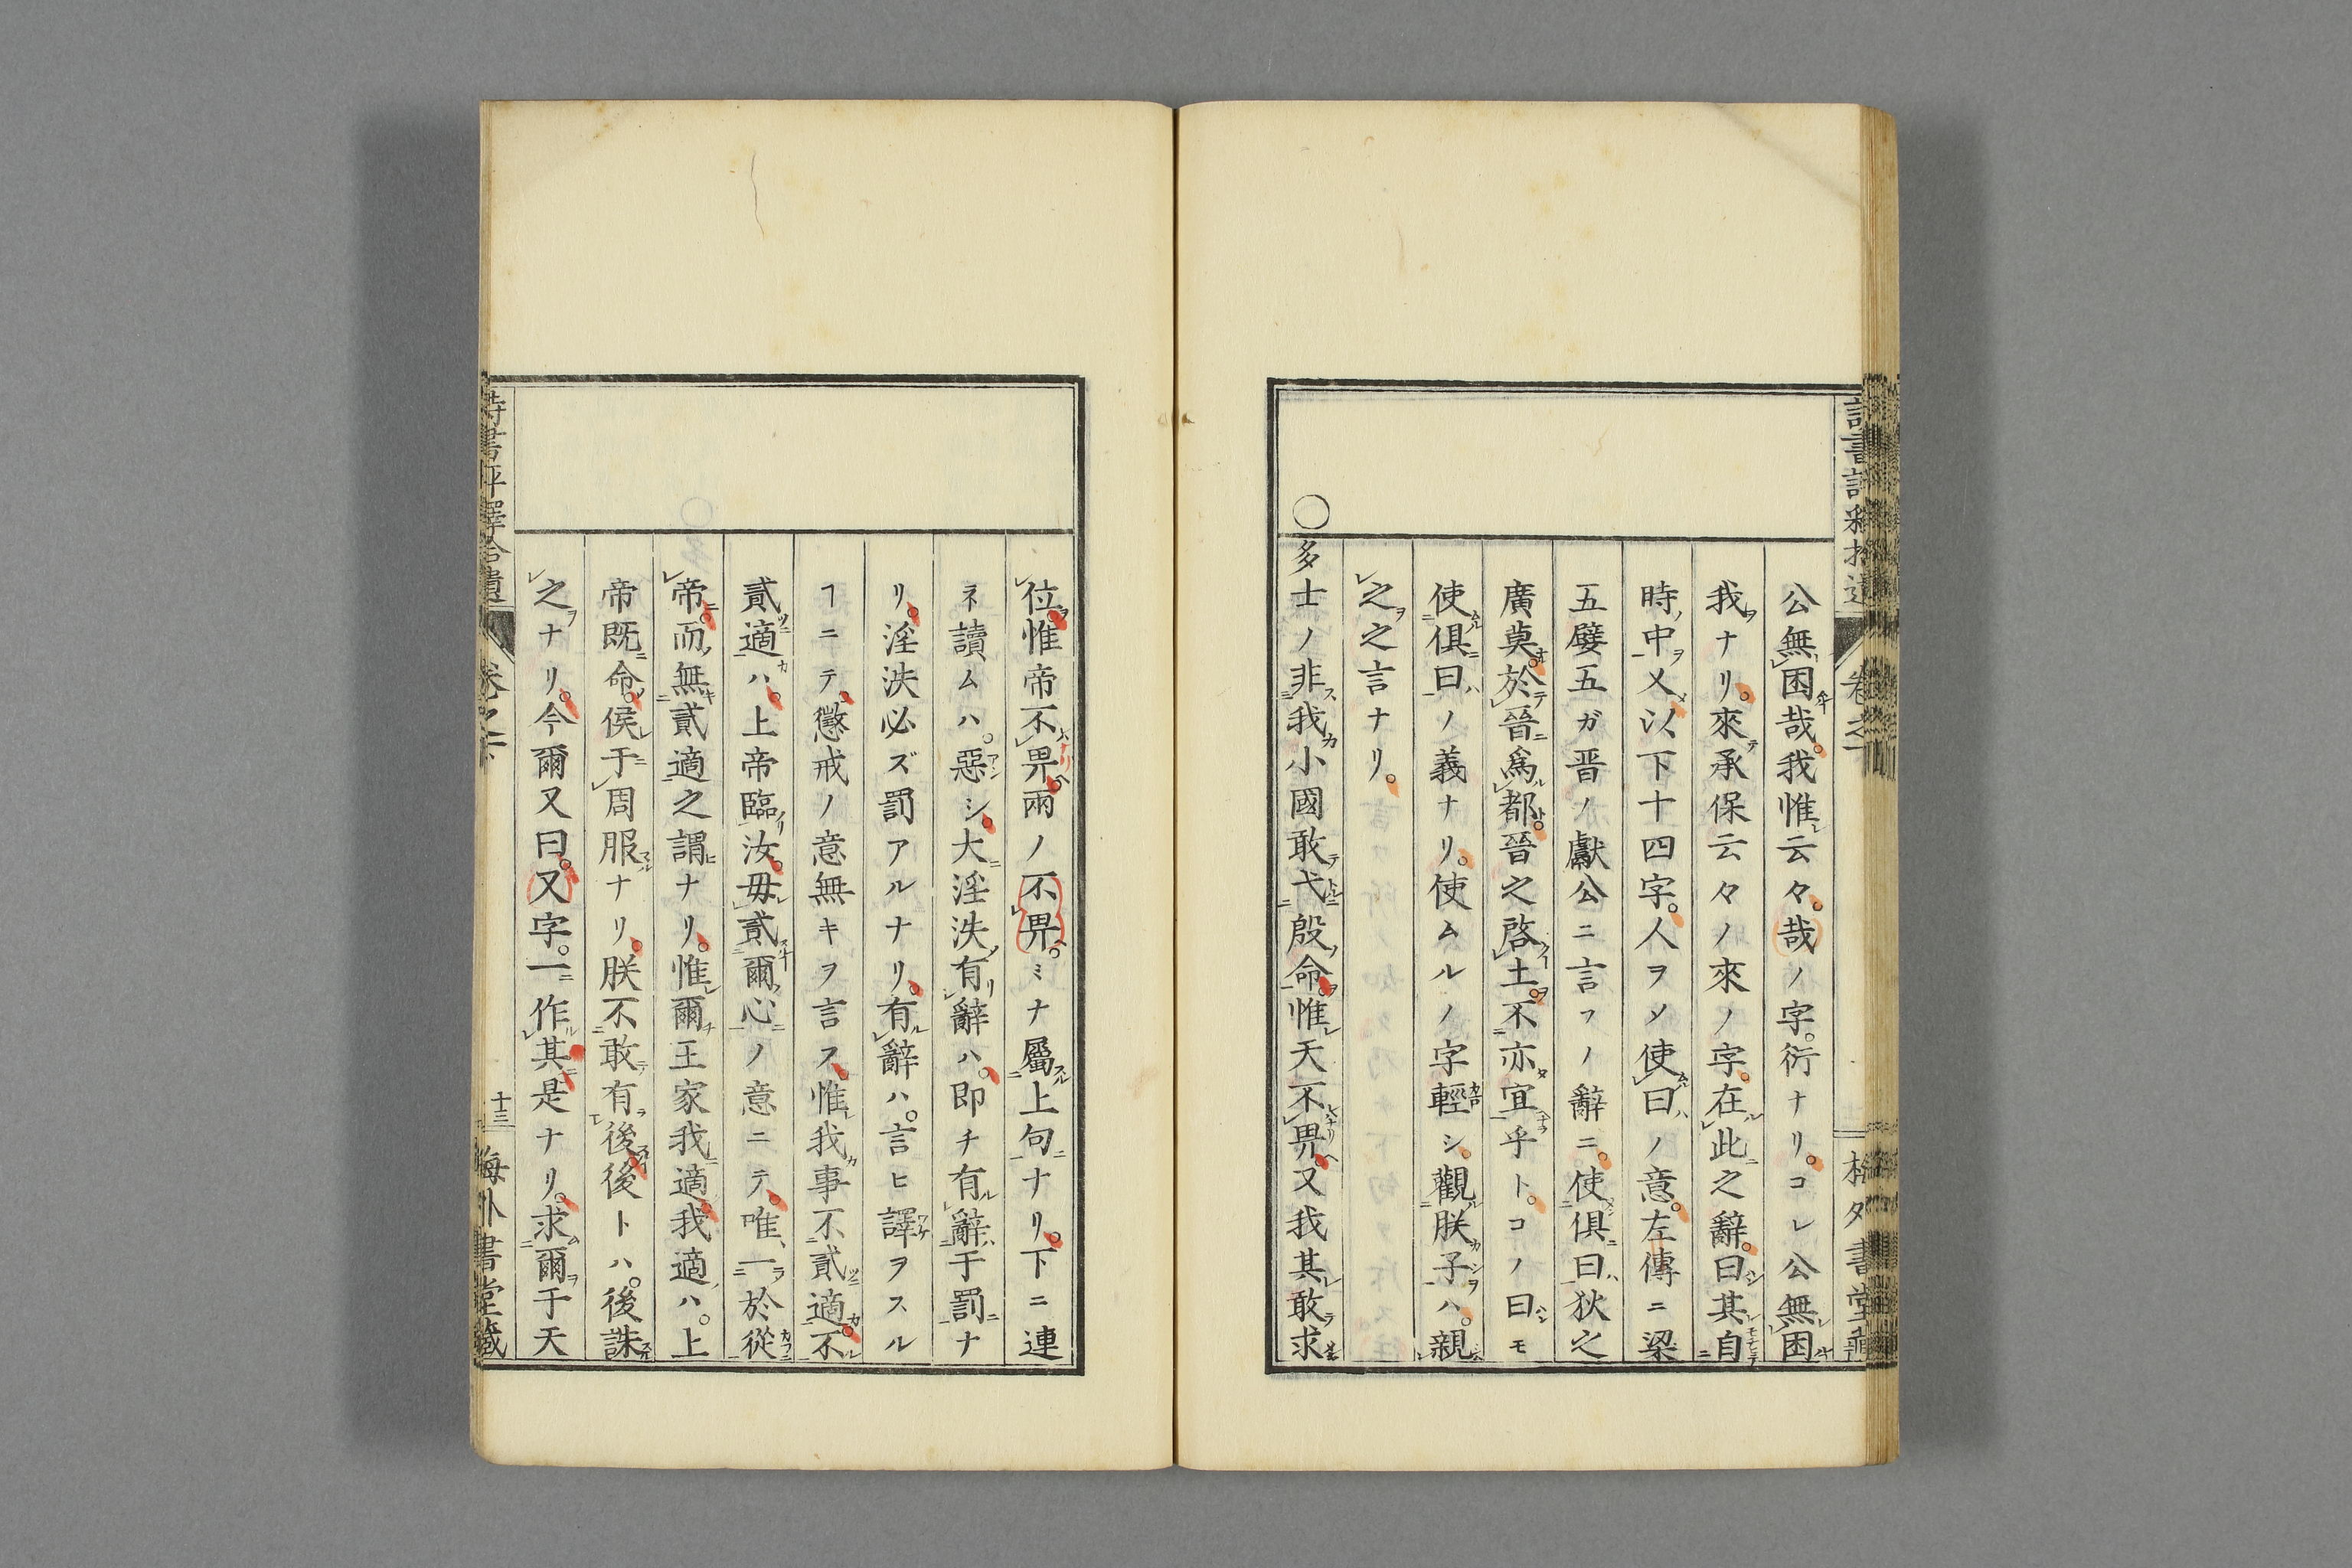 公無困哉我惟云々。哉ノ字。衍ナリ。コレ公無困
我ナリ。來承保云々ノ來ノ字。在此之辭。曰其自
時中乂以下十四字。人ヲメ使曰ノ意。左傳ニ梁
五嬖五ガ晋ノ獻公ニ言フノ辭ニ。使倶曰狄之
廣莫。於晉爲都。晉之啓土。不亦宜乎ト。コノ曰モ
使倶曰ノ義ナリ。使ムルノ字輕シ。觀朕子ハ。親
之之言ナリ。
○多士ノ非我小國敢弋殷命惟天不畀又我其敢求
位惟帝不畀。兩ノ不畀。ミナ屬上句ナリ。下ニ連
ネ讀ムハ。惡シ。大淫泆有辭ハ。即チ有辭于罰ナ
リ。淫泆必ズ罰アルナリ。有辭ハ。言ヒ譯ヲスル
ヿニテ。懲戒ノ意無キヲ言ス。惟我事不貳適。不
貳適ハ。上帝臨汝。毋貳爾心ノ意ニテ。唯一於從
帝。而無貳適之謂ナリ。惟爾王家我適。我適ハ。上
帝既命。侯于周服ナリ。朕不敢有後。後トハ。後誅
之ナリ。今爾又曰。又字。一作其。是ナリ。求爾于天
卷之下
十三
海外書堂藏